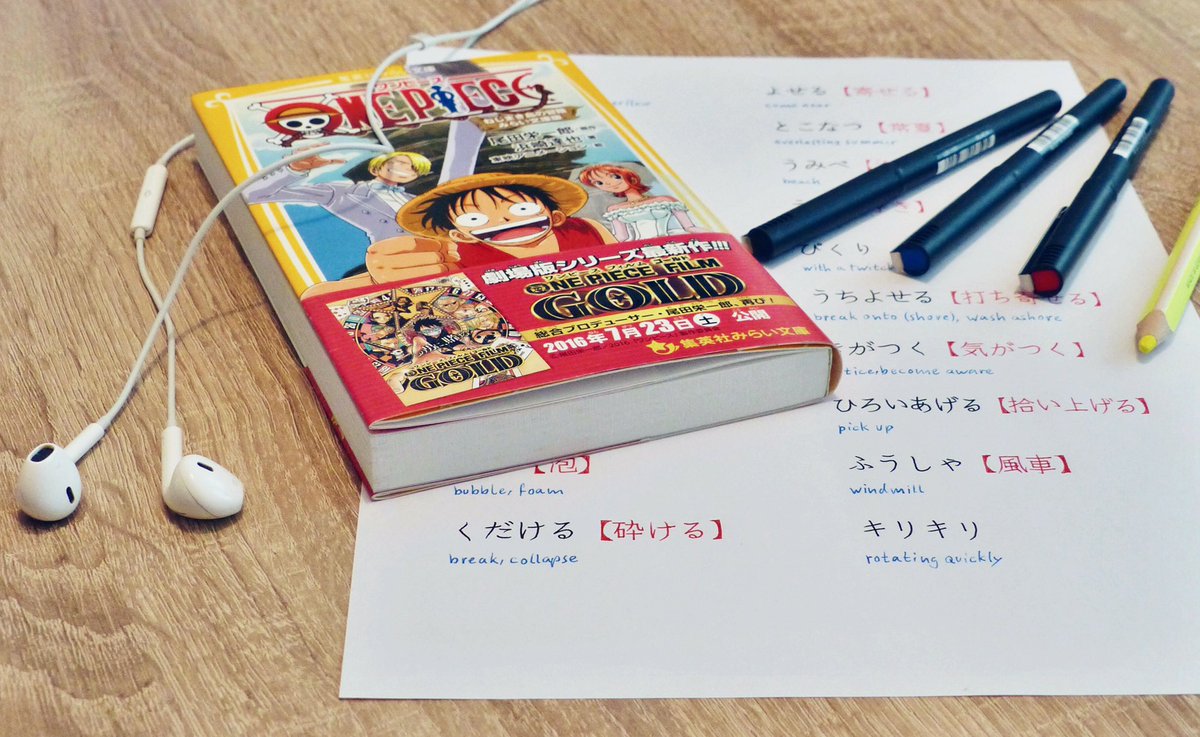 ワンピース
ONE PIECE
尾田栄一郎・原作
劇場版シリーズ最新作!!!
ワンピース フィルム ゴールド
ONE PIECE FILM
GOLD
総合プロデューサー・尾田栄一郎、再び!
2016年7月23日(土)公開
集英社みらい文庫
ONE PIECE FILM
GOLD
よせる【寄せる】
come near
とこなつ【常夏】
everlasting summer
うみべ
beach
ぴくり
with a twitch
うちよせる【打ち寄せる】
break onto (shore), wash ashore
がつく【気がつく】
become aware
ひろいあげる【拾い上げる】
pick up
【泡】
bubble, foam
ふうしゃ【風車】
windmill
くだける【砕ける】
break, collapse
キリキリ
rotating quickly